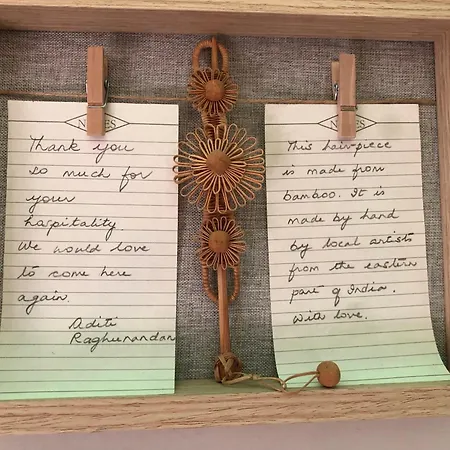 NOTES
Thank you
so much for
your
hospitality.
We would love
to come here
again.
Aditi
Raghunandan
NOTES
This hair-piece
is made from
bamboo. It is
made by hand
by local artists
from the eastern
part of India.
With love.